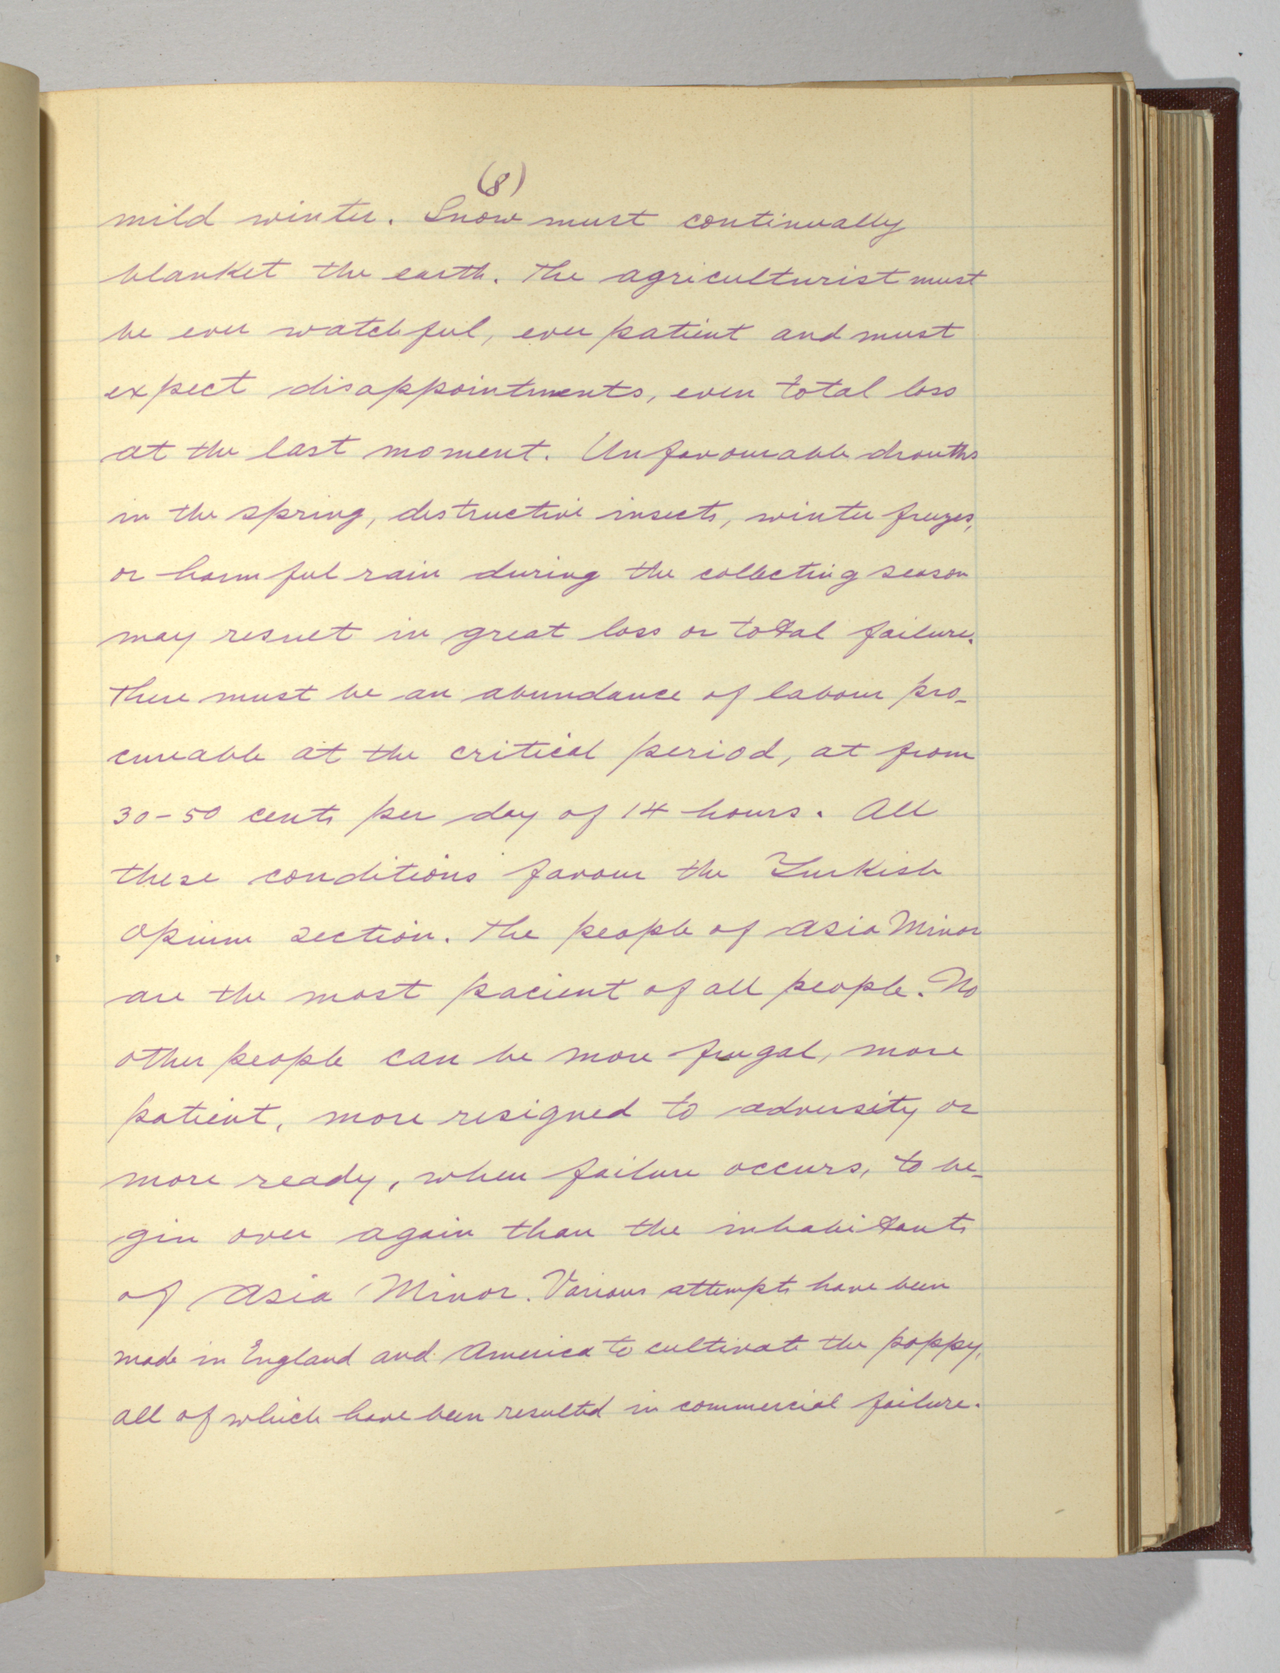 (8)
mild winter. Snow must continually
blanket the earth. The agriculturist must
be ever watchful, ever patient and must
expect disappointments, even total loss
at the last moment. Unfavourable drouths
in the spring, destructive insects, winter freezes,
or harmful rain during the collecting season
may result in great loss or total failure.
There must be an abundance of labour pro-
cureable at the critical period, at from
30-50 cents per day of 14 hours. All
these conditions favour the Turkish
opium section. The people of Asia Minor
are the most pacient of all people. No
other people can be more frugal, more
patient, more resigned to adversity or
more ready, when failure occurs, to be-
gin over again than the inhabitants
of Asia Minor. Various attempts have been
made in England and America to cultivate the poppy,
all of which have been resulted in commercial failure.